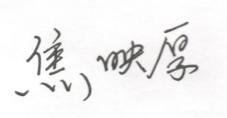 焦映厚